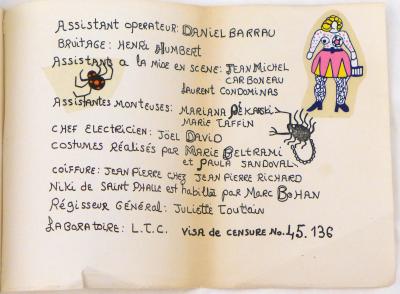 Assistant operateur: DANiEL BARRAU
BRUiTAGE: HENRi HUMBERT
Assistant a la mise en scene: JEAN MiCHEL
CARBONEAU
LAURENT CONDOMINAS
Assistantes monteuses: MARiANA PÉKARSKi
MARiE TAFFiN
CHEF ELECTRiCiEN: JOËL DAViD
COSTUMES RÉALiSÉS pAR MARiE BELTRAMi
et PAULA SANDOVAL
COiFFURE: JEAN PiERRE CHEZ JEAN PiERRE RiCHARD
Niki DE SAiNT PHALLE est HAbillée pAR MARC BOHAN
RÉGiSSEUR GÉNÉRAL: JULiETTE TOUTAiN
LABORATOiRE: L.T.C. ViSA de CENSURE No. 45.136